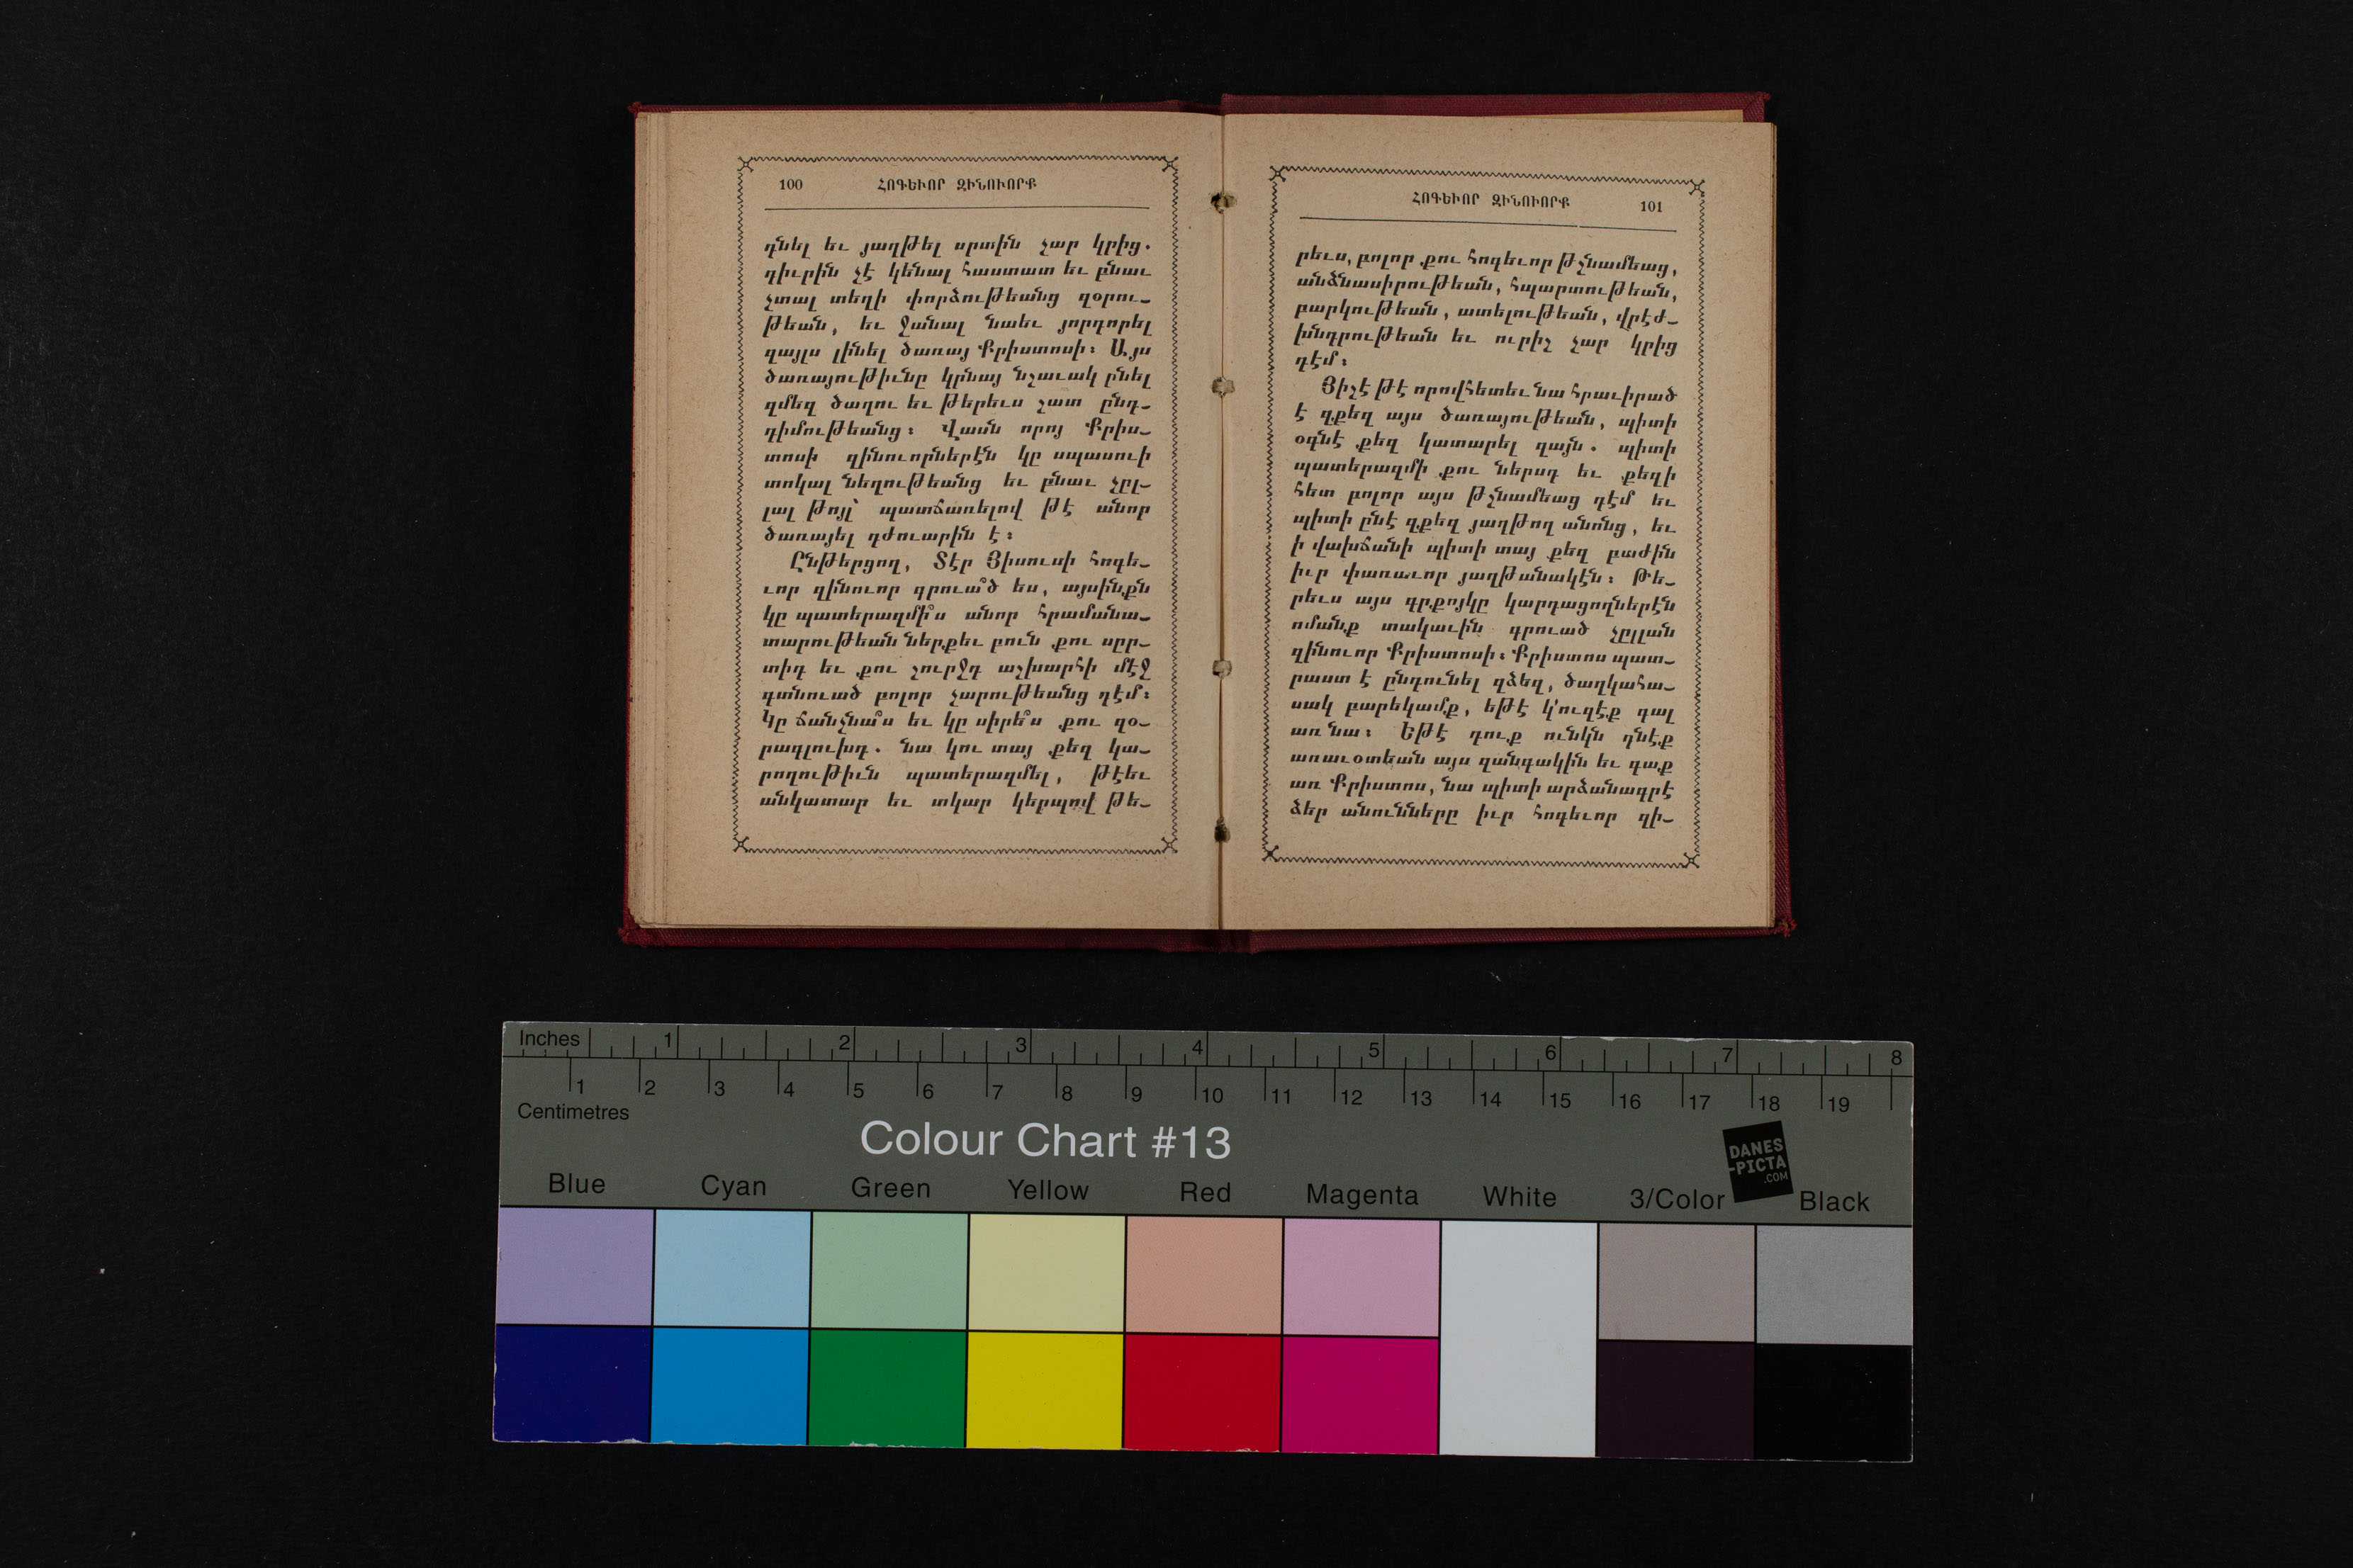 100 ՀՈԳԵՒՈՐ ԶԻՆՈՒՈՐՔ
դնել եւ յաղթել սրտին չար կրից.
դիւրին չէ կենալ հաստատ եւ բնաւ
չտալ տեղի փորձութեանց զօրու-
թեան, եւ ջանալ նաեւ յորդորել
զայլս լինել ծառայ Քրիստոսի։ Այս
ծառայութիւնը կրնայ նշաւակ ընել
զմեզ ծաղու եւ թերեւս շատ ընդ-
դիմութեանց։ Վասն որոյ Քրիս-
տոսի զինուորներէն կը սպասուի
տոկալ նեղութեանց եւ բնաւ չըլ-
լալ թոյլ՝ պատճառելով թէ անոր
ծառայել դժուարին է։
Ընթերցող, Տէր Յիսուսի հոգե-
ւոր զինուոր գրուա՞ծ ես, այսինքն
կը պատերազմի՞ս անոր հրամանա-
տարութեան ներքեւ բուն քու սըր-
տիդ եւ քու շուրջդ աշխարհի մէջ
գտնուած բոլոր չարութեանց դէմ։
Կը ճանչնա՞ս եւ կը սիրե՞ս քու զօ-
րագլուխդ. նա կու տայ քեզ կա-
րողութիւն պատերազմել, թէեւ
անկատար եւ տկար կերպով թե-
ՀՈԳԵՒՈՐ ԶԻՆՈՒՈՐՔ 101
րեւս, բոլոր քու հոգեւոր թշնամեաց,
անձնասիրութեան, հպարտութեան,
բարկութեան, ատելութեան, վրէժ-
խնդրութեան եւ ուրիշ չար կրից
դէմ։
Յիշէ թէ որովհետեւ նա հրաւիրած
է զքեզ այս ծառայութեան, պիտի
օգնէ քեզ կատարել զայն. պիտի
պատերազմի քու ներսդ եւ քեզի
հետ բոլոր այս թշնամեաց դէմ եւ
պիտի ընէ զքեզ յաղթող անոնց, եւ
ի վախճանի պիտի տայ քեզ բաժին
իւր փառաւոր յաղթանակէն։ Թե-
րեւս այս գրքոյկը կարդացողներէն
ոմանք տակաւին գրուած չըլլան
զինուոր Քրիստոսի։ Քրիստոս պատ-
րաստ է ընդունել զձեզ, ծաղկահա-
սակ բարեկամք, եթէ կ՚ուզէք գալ
առ նա։ Եթէ դուք ունկն դնէք
առաւօտեան այս զանգակին եւ գաք
առ Քրիստոս, նա պիտի արձանագրէ
ձեր անունները իւր հոգեւոր զի-
Inches 1 2 3 4 5 6 7 8
1 2 3 4 5 6 7 8 9 10 11 12 13 14 15 16 17 18 19
Centimetres
Colour Chart #13
DANES
-PICTA
.COM
Blue Cyan Green Yellow Red Magenta White 3/Color Black